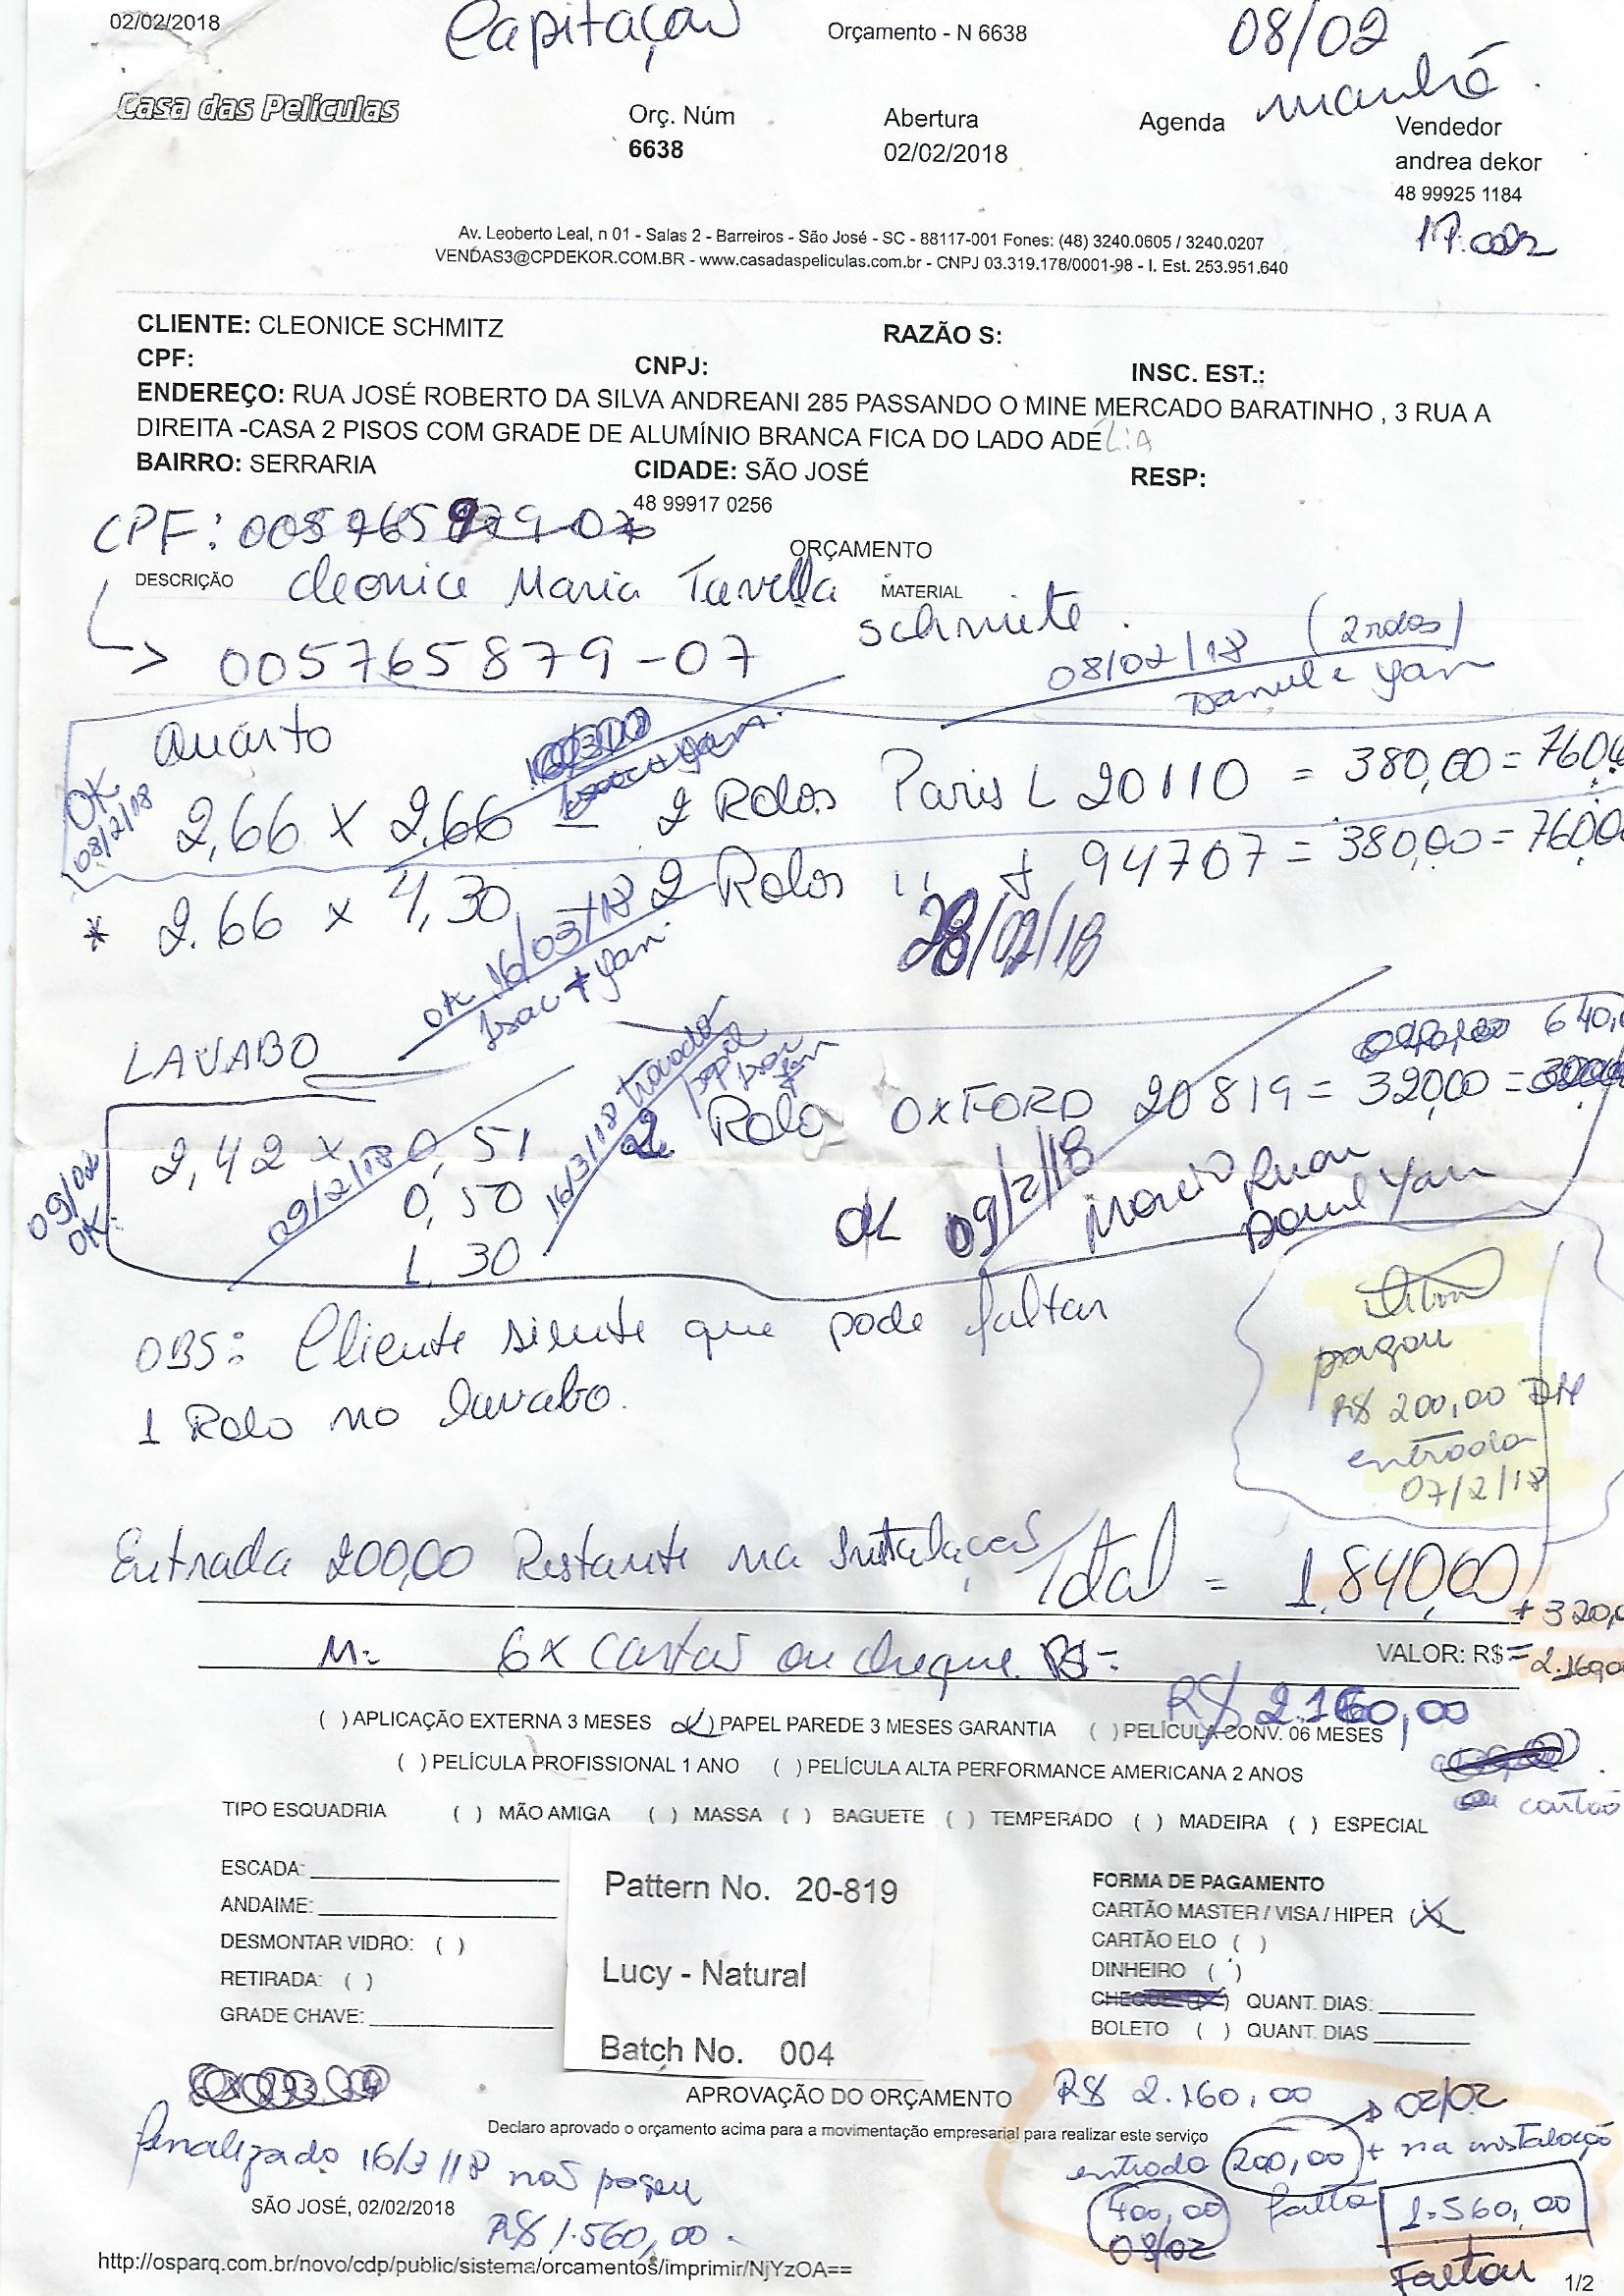 02/02/2018
Capitação
Orçamento - N 6638
08/02
manhã
Casa das Películas
Orç. Núm
6638
Abertura
02/02/2018
Agenda
Vendedor
andrea dekor
48 99925 1184
Av. Leoberto Leal, n 01 - Salas 2 - Barreiros - São José - SC - 88117-001 Fones: (48) 3240.0605 / 3240.0207
VENDAS3@CPDEKOR.COM.BR - www.casadaspeliculas.com.br - CNPJ 03.319.178/0001-98 - I. Est. 253.951.640
CLIENTE: CLEONICE SCHMITZ
RAZÃO S:
CPF:
CNPJ:
INSC. EST.:
ENDEREÇO: RUA JOSÉ ROBERTO DA SILVA ANDREANI 285 PASSANDO O MINE MERCADO BARATINHO , 3 RUA A
DIREITA -CASA 2 PISOS COM GRADE DE ALUMÍNIO BRANCA FICA DO LADO ADELIA
BAIRRO: SERRARIA
CIDADE: SÃO JOSÉ
RESP:
48 99917 0256
CPF:
ORÇAMENTO
DESCRIÇÃO
Cleonice Maria
MATERIAL
005765879-07
08/02/18 (2 rolos)
Daniel e Yan
Quarto
OK
08/2/18
2,66 x 2,66 = 2 Rolos Paris L 20110 = 380,00 = 760,00
* 2.66 x 4,30 2 Rolos " + 94707 = 380,00 = 760,00
OK 16/03/18
Isac + Yan.
28/02/18
LAVABO
640,00
2,42 x 0,51 2 Rolo OXFORD 20819 = 320,00 =
0,50
1,30
09/2/18
16/3/18
09/02
OK
OK 09/2/18
Ruan
Daniel Yan
OBS: Cliente siente que pode faltar
1 Rolo no lavabo.
pagou
R$ 200,00
entrada
07/2/18
Entrada 200,00 Restante na Instalação Total = 1.840,00
+ 320,00
M= 6x cartão ou cheque R$=
VALOR: R$ = 2.160,00
R$ 2.160,00
( ) APLICAÇÃO EXTERNA 3 MESES (X) PAPEL PAREDE 3 MESES GARANTIA ( ) PELÍCULA CONV. 06 MESES
( ) PELÍCULA PROFISSIONAL 1 ANO ( ) PELÍCULA ALTA PERFORMANCE AMERICANA 2 ANOS
cartão
TIPO ESQUADRIA ( ) MÃO AMIGA ( ) MASSA ( ) BAGUETE ( ) TEMPERADO ( ) MADEIRA ( ) ESPECIAL
ESCADA:
ANDAIME:
DESMONTAR VIDRO: ( )
RETIRADA: ( )
GRADE CHAVE:
Pattern No. 20-819
Lucy - Natural
Batch No. 004
FORMA DE PAGAMENTO
CARTÃO MASTER / VISA / HIPER (X)
CARTÃO ELO ( )
DINHEIRO ( )
CHEQUE (X) QUANT. DIAS:
BOLETO ( ) QUANT. DIAS
APROVAÇÃO DO ORÇAMENTO
Declaro aprovado o orçamento acima para a movimentação empresarial para realizar este serviço
R$ 2.160,00
02/02
entrada 200,00 + na instalação
400,00 falta 1.560,00
08/02
Faltou
finalizado 16/3/18 não pagou
R$ 1.560,00
SÃO JOSÉ, 02/02/2018
http://osparq.com.br/novo/cdp/public/sistema/orcamentos/imprimir/NjYzOA==
1/2